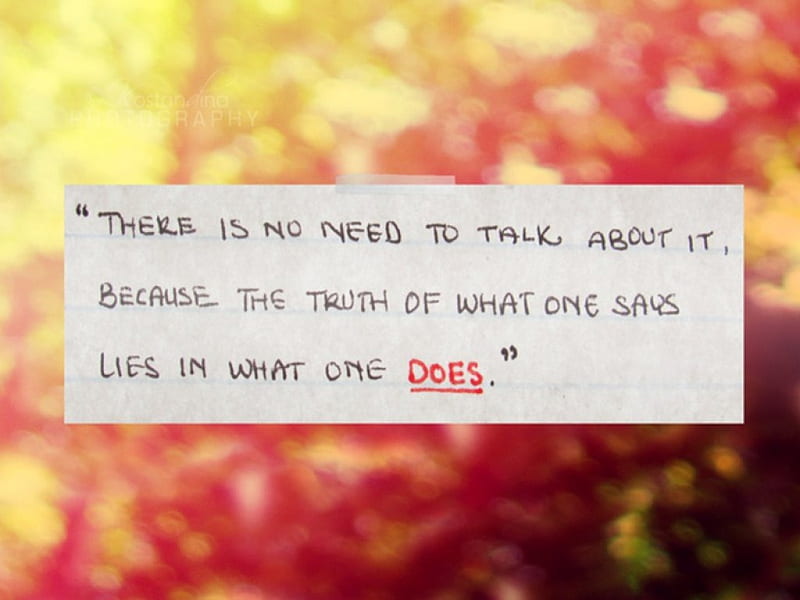 PHOTOGRAPHY
“THERE IS NO NEED TO TALK ABOUT IT,
BECAUSE THE TRUTH OF WHAT ONE SAYS
LIES IN WHAT ONE DOES.”